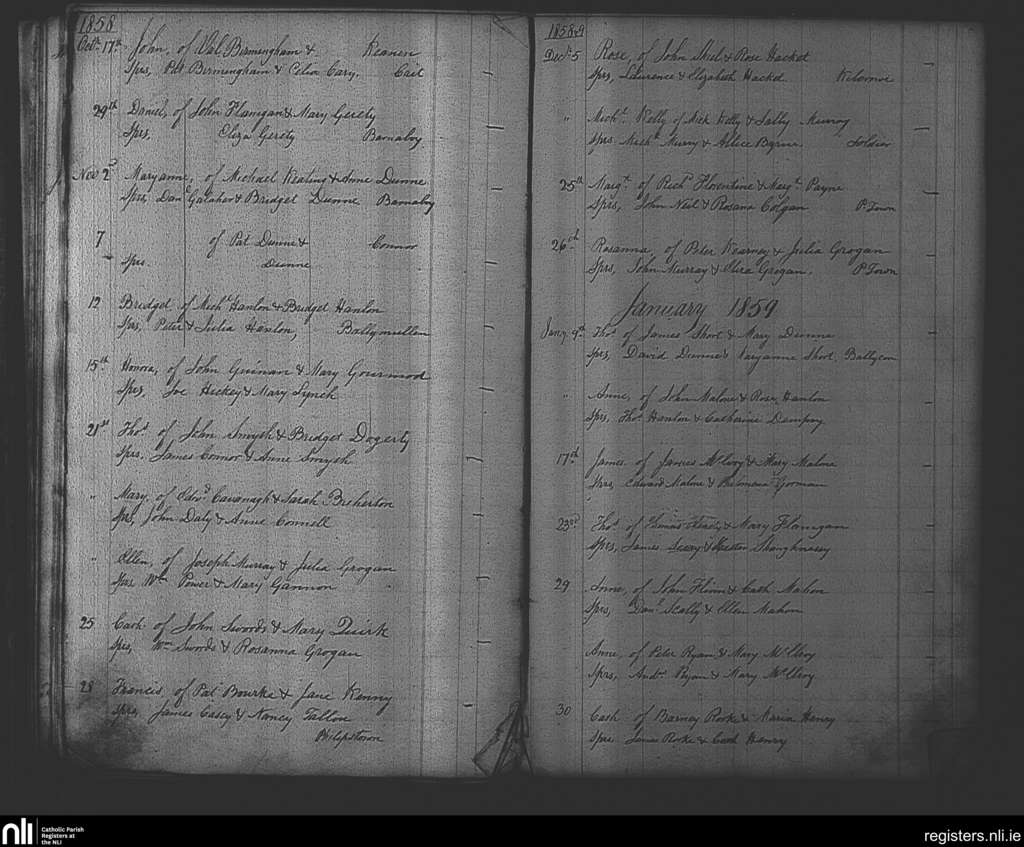 1858
Octr 17th John, of Wal Birmingham & Keanen
Sprs, Pat Birmingham & Celia Cary. Cait
29th Daniel, of John Flanigan & Mary Gerety
Sprs, Eliza Gerety Barnaboy
Novr 2d Maryanne, of Michael Keating & Anne Dunne
Sprs, Danl Galaher & Bridget Dunne Barnaboy
7 of Pat Dunne & Connor
Sprs. Dunne
12 Bridget, of Michl Hanlon & Bridget Hanlon
Sprs, Peter & Julia Hanlon, Ballymullen
15th Honora, of John Guinan & Mary Gourmod
Sprs, Joe Hickey & Mary Lynch
21st Thos of John Smyth & Bridget Dogerty
Sprs. James Connor & Anne Smyth
" Mary, of Edwd Cavanagh & Sarah Breherton
Sprs, John Daly & Anne Connell
" Ellen, of Joseph Murray & Julia Grogan
Sprs. Wm Power & Mary Gannon
25 Cath of John Swords & Mary Quirk
Sprs, Wm Swords & Rosanna Grogan
28 Francis, of Pat Bourke & Jane Kenny
Sprs, James Casey & Nancy Fallon
Philipstown
1858-9
Decr 5 Rose, of John Shiel & Rose Hacket
Sprs, Laurence & Elizabeth Hacket
" Michl Kelly of Mick Kelly & Sally Murray
Sprs. Michl Murry & Alice Byrne. Soldier
25th Margt of Richd Florentine & Margt Payne
Sprs, John Neil & Rosana Colgan P. Town
26th Rosanna, of Peter Kearney & Julia Grogan
Sprs, John Murray & Eliza Grogan. P. Town
January 1859
Jany 9th Thos of James Short & Mary Dunne
Sprs, David Dunne & Maryanne Short, Ballycon
" Anne, of John Malone & Rose Hanlon
Sprs. Thos Hanlon & Catherine Dempsey
17th James. of James McEvoy & Mary Malone
Sprs, Edward Malone & Gorman
23rd Thos of & Mary Flanigan
Sprs, James & Shaughnessy
29 Anne, of John Flinn & Cath Mahon
Sprs, Danl Scally & Ellen Mahon
Anne, of Peter Ryan & Mary McElroy
Sprs, Andw Ryan & Mary McElroy
30 Cath of Barney Rorke & Maria Henry
Sprs James Rorke & Cath Henry
nli Catholic Parish
Registers at
the NLI
registers.nli.ie